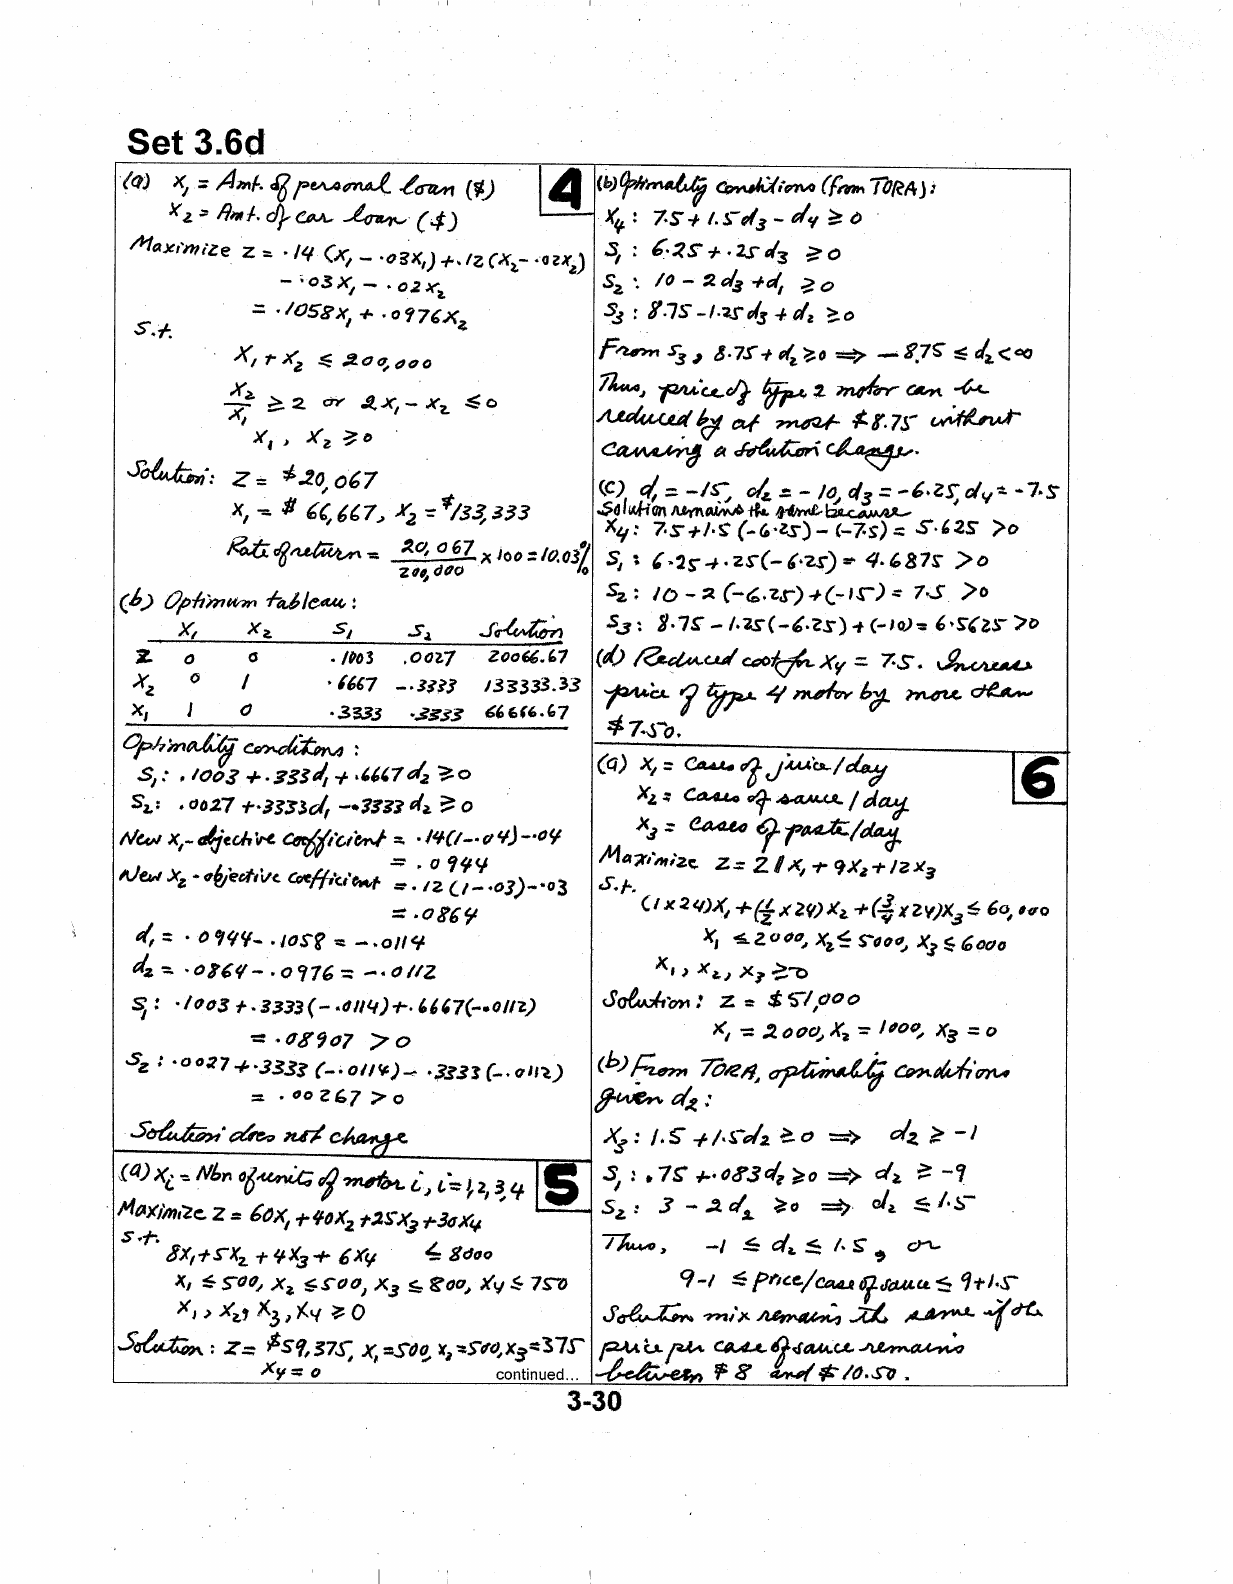 Set 3.6d
4
(a) X₁ = Amt. of personal loan ($)
X₂ = Amt. of car loan ($)
Maximize Z = .14 (X₁ - .03X₁) + .12 (X₂ - .02X₂)
- .03X₁ - .02X₂
= .1058X₁ + .0976X₂
S.t.
X₁ + X₂ ≤ 200,000
X₂/X₁ ≥ 2 or 2X₁ - X₂ ≤ 0
X₁, X₂ ≥ 0
Solution: Z = $20,067
X₁ = $ 66,667, X₂ = $133,333
Rate of return = 20,067/200,000 x 100 = 10.03%
(b) Optimum tableau:
X₁ X₂ S₁ S₂ Solution
Z 0 0 .1003 .0027 20066.67
X₂ 0 1 .6667 -.3333 133333.33
X₁ 1 0 .3333 .3333 66666.67
Optimality conditions:
S₁: .1003 + .333d₁ + .6667d₂ ≥ 0
S₂: .0027 + .3333d₁ - .3333d₂ ≥ 0
New X₁-objective coefficient = .14(1-.04)-.04
= .0944
New X₂-objective coefficient = .12(1-.03)-.03
= .0864
d₁ = .0944 - .1058 = -.0114
d₂ = .0864 - .0976 = -.0112
S₁: .1003 + .3333(-.0114) + .6667(-.0112)
= .08907 > 0
S₂: .0027 + .3333(-.0114) - .3333(-.0112)
= .00267 > 0
Solution does not change
5
(a) Xᵢ = Nbr of units of motor i, i=1,2,3,4
Maximize Z = 60X₁ + 40X₂ + 25X₃ + 30X₄
S.t.
8X₁ + 5X₂ + 4X₃ + 6X₄ ≤ 8000
X₁ ≤ 500, X₂ ≤ 500, X₃ ≤ 800, X₄ ≤ 750
X₁, X₂, X₃, X₄ ≥ 0
Solution: Z = $59,375, X₁=500, X₂=500, X₃=375
X₄ = 0
continued...
(b) Optimality conditions (from TORA):
X₄: 7.5 + 1.5d₃ - d₄ ≥ 0
S₁: 6.25 + .25d₃ ≥ 0
S₂: 10 - 2d₃ + d₁ ≥ 0
S₃: 8.75 - 1.25d₃ + d₂ ≥ 0
From S₃, 8.75 + d₂ ≥ 0 ⇒ -8.75 ≤ d₂ < ∞
Thus, price of type 2 motor can be
reduced by at most $8.75 without
causing a solution change.
(c) d₁ = -15, d₂ = -10, d₃ = -6.25, d₄ = -7.5
Solution remains the same because
X₄: 7.5 + 1.5 (-6.25) - (-7.5) = 5.625 > 0
S₁: 6.25 + .25(-6.25) = 4.6875 > 0
S₂: 10 - 2 (-6.25) + (-15) = 7.5 > 0
S₃: 8.75 - 1.25(-6.25) + (-10) = 6.5625 > 0
(d) Reduced cost for X₄ = 7.5. Increase
price of type 4 motor by more than
$7.50.
6
(a) X₁ = Cases of juice/day
X₂ = Cases of sauce/day
X₃ = Cases of paste/day
Maximize Z = 21X₁ + 9X₂ + 12X₃
S.t.
(1x24)X₁ + (1/2 x 24)X₂ + (3/4 x 24)X₃ ≤ 60,000
X₁ ≤ 2000, X₂ ≤ 5000, X₃ ≤ 6000
X₁, X₂, X₃ ≥ 0
Solution: Z = $51,000
X₁ = 2000, X₂ = 1000, X₃ = 0
(b) From TORA, optimality conditions
given d₂:
X₃: 1.5 + 1.5d₂ ≥ 0 ⇒ d₂ ≥ -1
S₁: .75 + .083d₂ ≥ 0 ⇒ d₂ ≥ -9
S₂: 3 - 2d₂ ≥ 0 ⇒ d₂ ≤ 1.5
Thus, -1 ≤ d₂ ≤ 1.5, or
9-1 ≤ price/case of sauce ≤ 9+1.5
Solution mix remains the same if the
price per case of sauce remains
between $8 and $10.50.
3-30